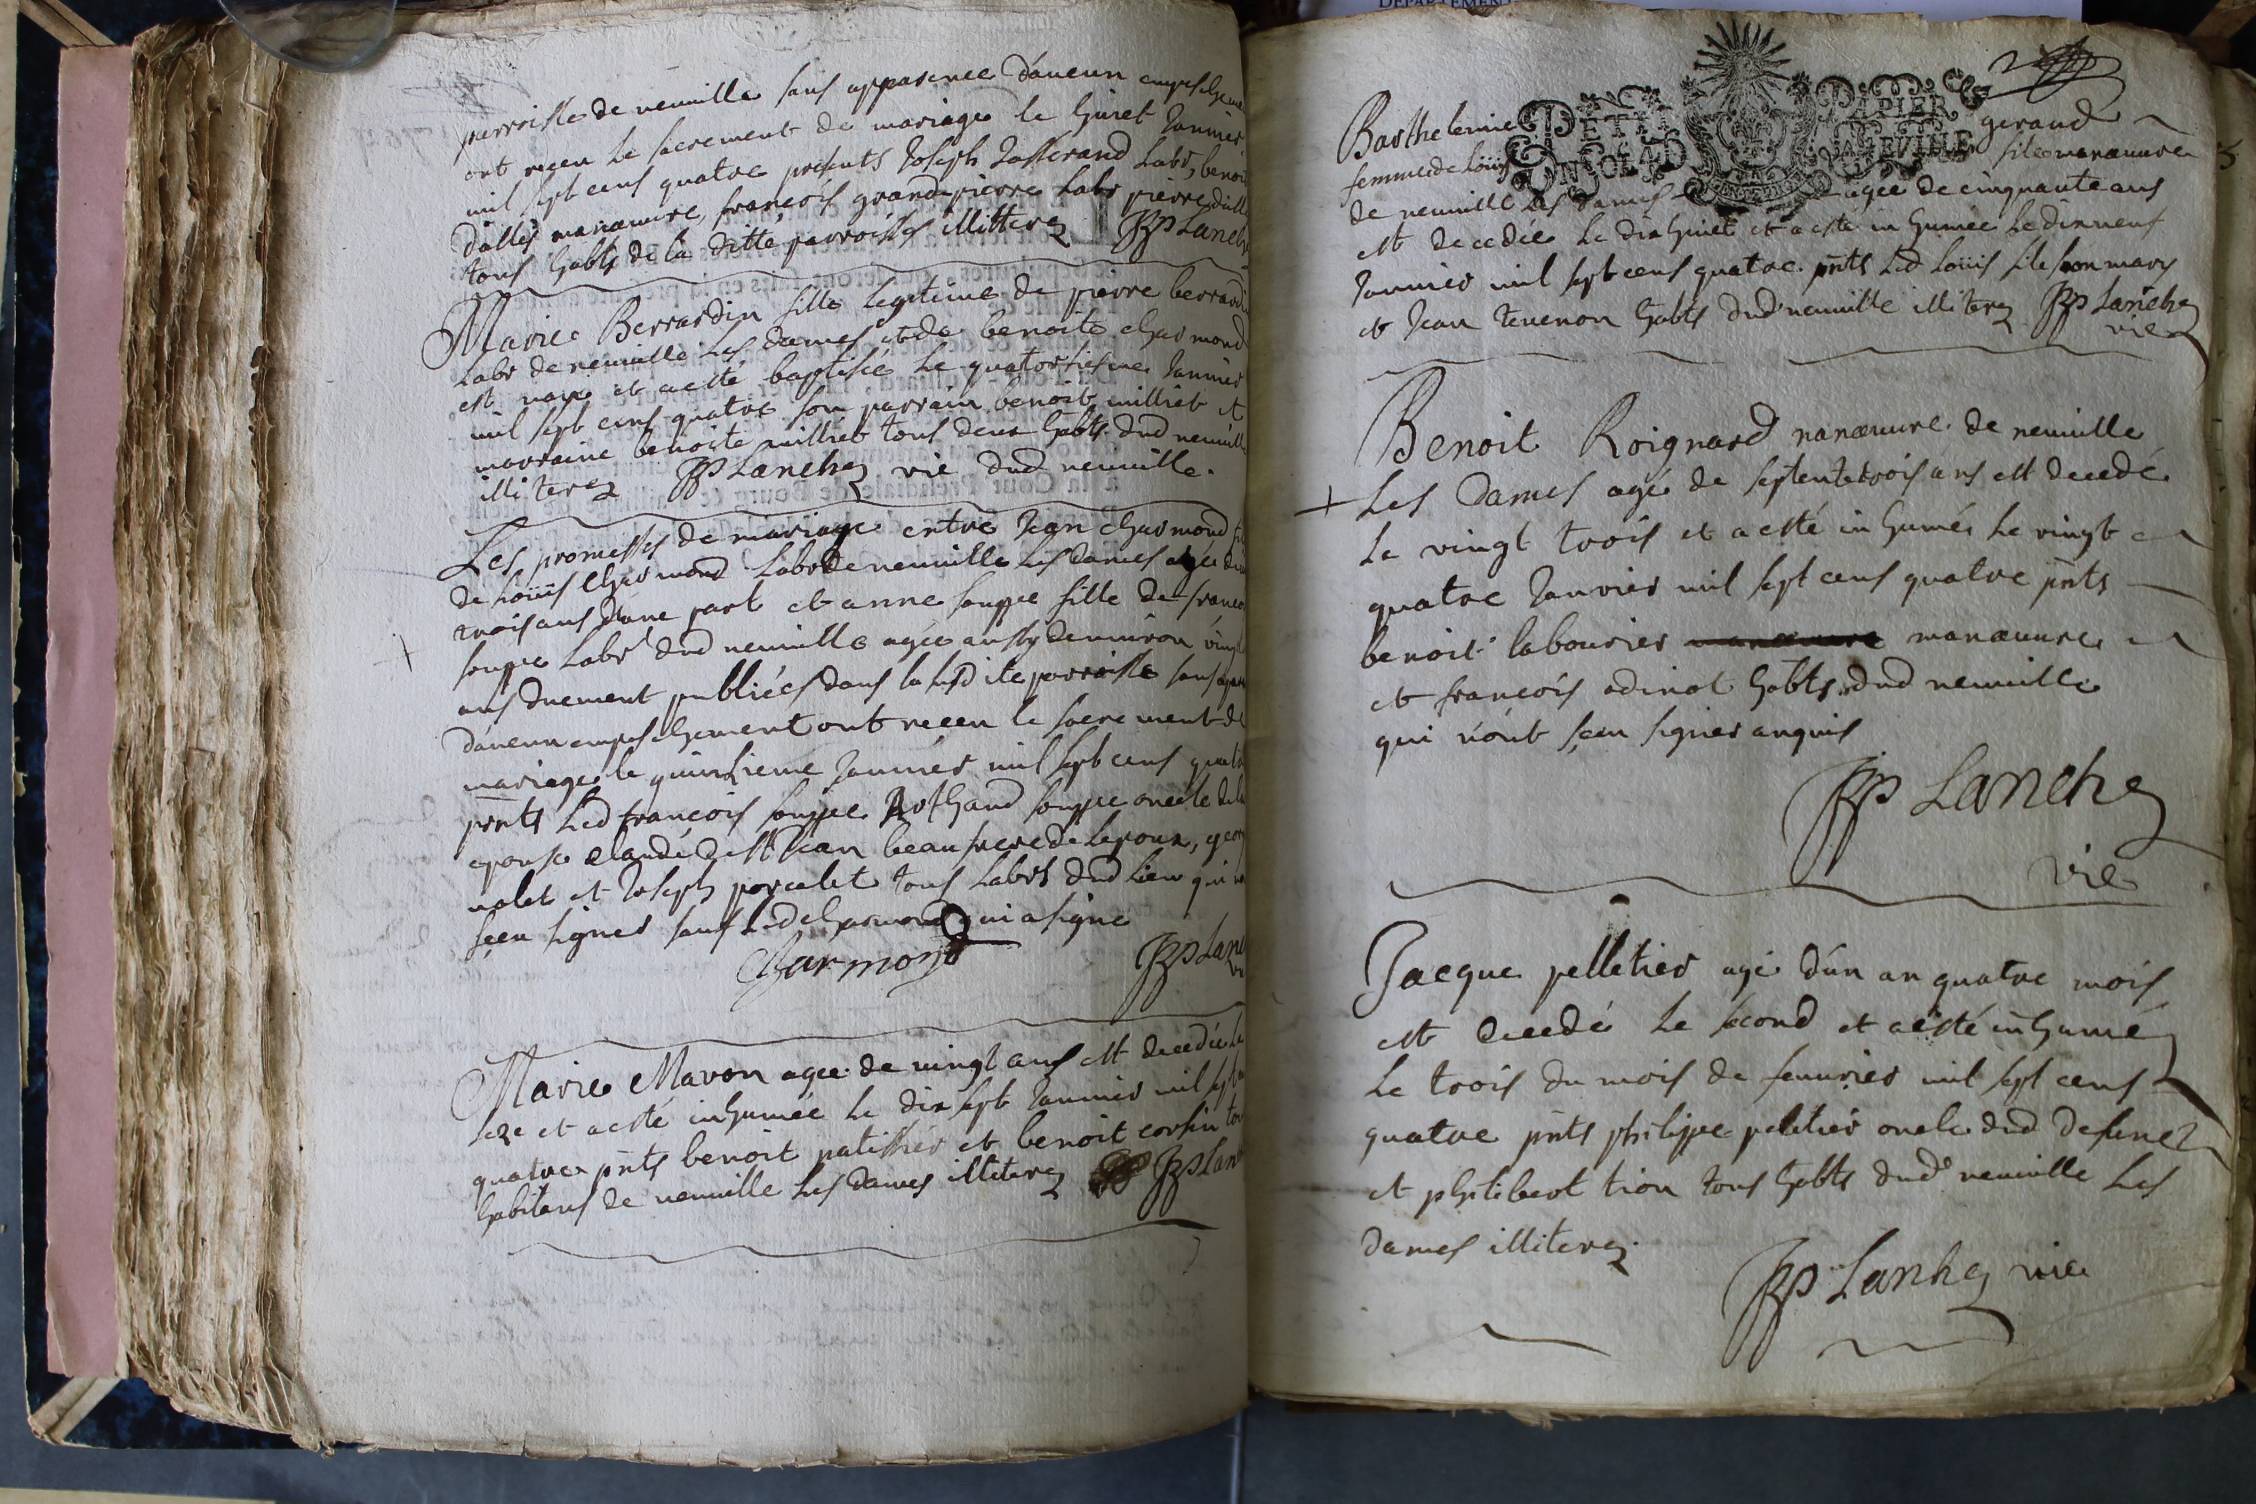 parroisse de neuuille sans apparence d'aucun empeschem
ont receu le sacrement de mariage le huict Januier
mil sept cens quatre presents Joseph Josserand Labr, benoit
dallis manœuure, françois grandpierre Labr pierre dalli
tous habts de la ditte parroisse illitterez JJP Lanch
Marie Berrardin fille legitime de pierre berrardin
Labr de neuuille les dames et de benoite charmond
est naye et a esté baptisée le quatorsiesme Januier
mil sept cens quatre son parrain benoit milliet et
marraine benoite milliet tous deux habts dud neuuille
illiterez JJP Lanchez vie dud neuuille.
Les promesses de mariage entre Jean charmond fil
de Loüis charmond Labr de neuuille les dames agé de
trois ans d'une part et anne souppe fille de franço
souppe Labr dud neuuille agée aussy denuiron vingt
ans duement publiées dans la susdite parroisse sans appar
d'aucun empeschement ont receu le sacrement de
mariage le quinsieme Januier mil sept cens quatre
pnts Led françois souppe Rolhand souppe oncle de la
epouse claude Jean beaufrere de Lepoux,
ualet et Joseph porcelet tous Labrs dud Lieu qui n
sçeu signer sauf Led charmond qui a signé
Charmond JJP Lan
Marie Mavon agee de vingt ans est decedée le
seze et a esté inhumée le dix sept Januier mil sept
quatre pnts benoit patissier et benoit corsin tou
habitans de neuuille les dames illiterez JJP Lan
PETIT PAPIER
Barthelemie geraud
femme de Loüis sile manœuure
de neuuille les dames agée de cinquante ans
est decedée le dixhuict et a esté inhumée le dixneuf
Januier mil sept cens quatre pnts Led Loüis sile son mary
et Jean teuenon habts dud neuuille illiterez JJP Lanchez
vie
Benoit Roignard manœuure de neuuille
Les dames agé de septente trois ans est decedé
Le vingt trois et a esté inhumé Le vingt
quatre Januier mil sept cens quatre pnts
benoit labourier manœuure
et françois odinot habts dud neuuille
qui n'ont sçeu signer anquis
JJP Lanchez
vie
Jacque pelletier agé d'un an quatre mois
est decedé le second et a esté inhumé
Le trois du mois de feuurier mil sept cens
quatre pnts philippe peletier oncle dud defunct
et philibert tion tous habts dud neuuille Les
dames illiterez.
JJP Lanhez vie